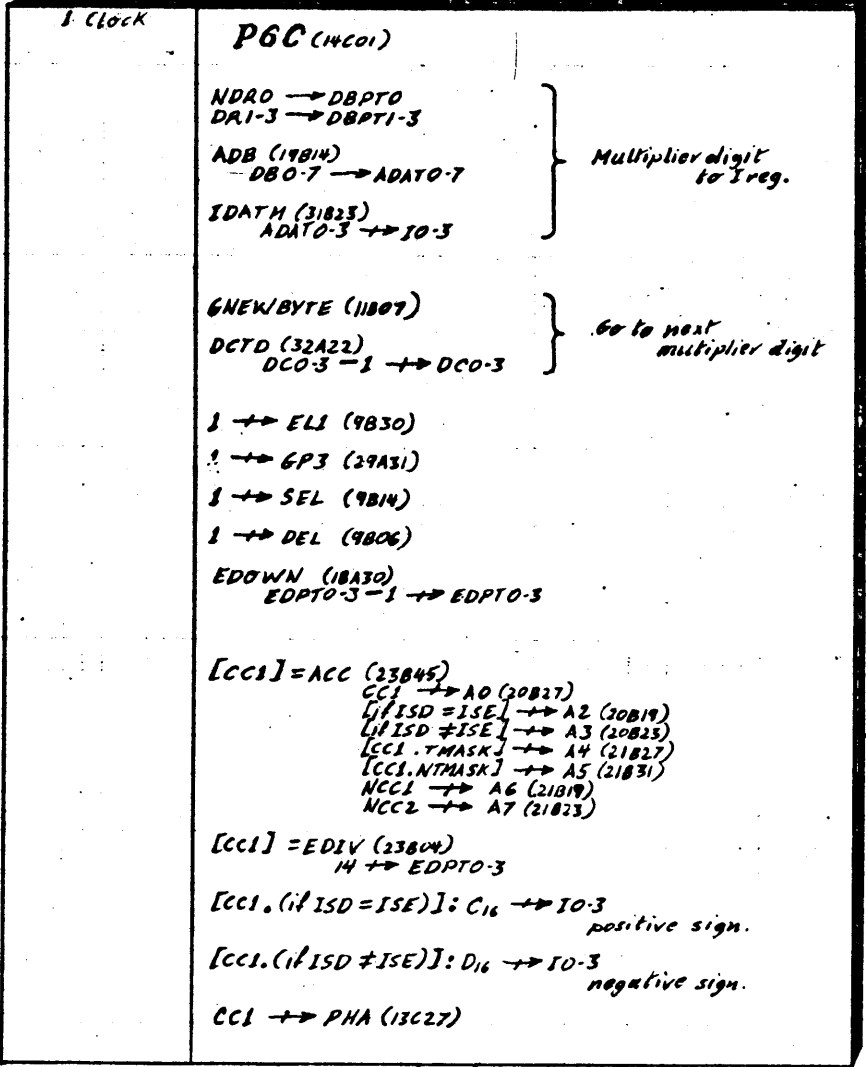 1 Clock
PGC (14C01)
NDR0 → DBPT0
DR1-3 → DBPT1-3
ADB (19B14)
DB0-7 → ADAT0-7
IDATM (31B23)
ADAT0-3 ++> I0-3
Multiplier digit
to I reg.
GNEWBYTE (11B07)
DCTD (32A22)
DC0-3 - 1 ++> DC0-3
Go to next
multiplier digit
1 ++> EL1 (9B30)
1 ++> GP3 (29A31)
1 ++> SEL (9B14)
1 ++> DEL (9B06)
EDOWN (18A30)
EDPT0-3 - 1 ++> EDPT0-3
[CC1] = ACC (23B45)
CC1 ++> A0 (20B27)
[if ISD = ISE] ++> A2 (20B19)
[if ISD ≠ ISE] ++> A3 (20B23)
[CC1.TMASK] ++> A4 (21B27)
[CC1.NTMASK] ++> A5 (21B31)
NCC1 ++> A6 (21B19)
NCC2 ++> A7 (21B23)
[CC1] = EDIV (23B04)
14 ++> EDPT0-3
[CC1.(if ISD = ISE)]: C₁₆ ++> I0-3
positive sign.
[CC1.(if ISD ≠ ISE)]: D₁₆ ++> I0-3
negative sign.
CC1 ++> PHA (13C27)